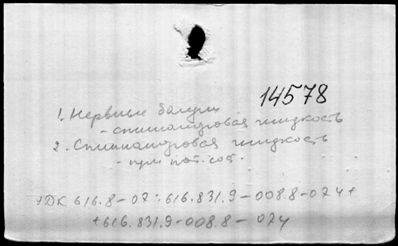 14578
1. Нервные болезни
- спинномозговая жидкость
2. Спинномозговая жидкость
- при пат. сост.
УДК 616.8-07:616.831.9-008.8-074+
+616.831.9-008.8-074